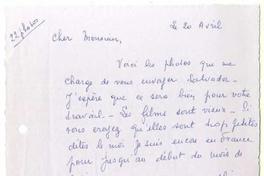 22 photos
Le 20 Avril
Cher Monsieur,
Voici les photos que me
charge de vous envoyer Salvador.
J'espère que ce sera bien pour votre
travail - Les films sont vieux. Si
vous croyez qu'elles sont trop petites
dites le moi je suis encore en France
pour jusqu'au début du mois de